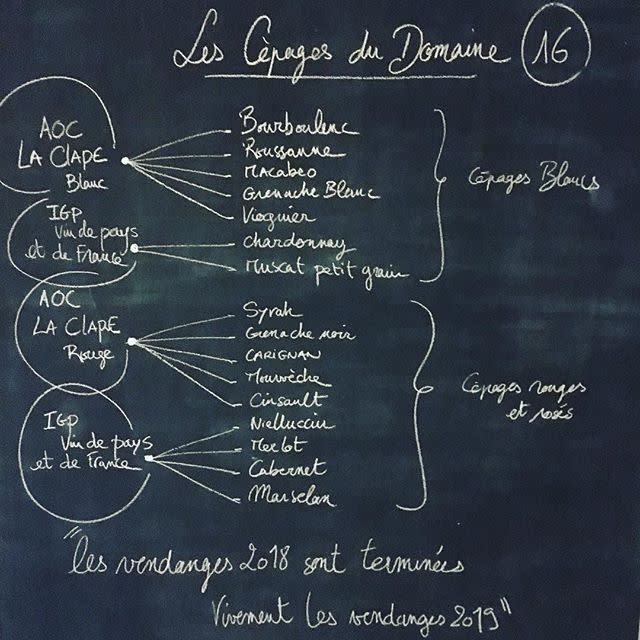 Les Cèpages du Domaine 16
AOC
LA CLAPE
Blanc
Bourboulenc
Roussanne
Macabeo
Grenache Blanc
Viognier
Cèpages Blancs
IGP
Vin de pays
et de France
Chardonnay
Muscat petit grain
AOC
LA CLAPE
Rouge
Syrah
Grenache noir
CARIGNAN
Mourvèche
Cinsault
Cèpages rouges
et rosés
IGP
Vin de pays
et de France
Nielluccio
Merlot
Cabernet
Marselan
"les vendanges 2018 sont terminées
Vivement les vendanges 2019"